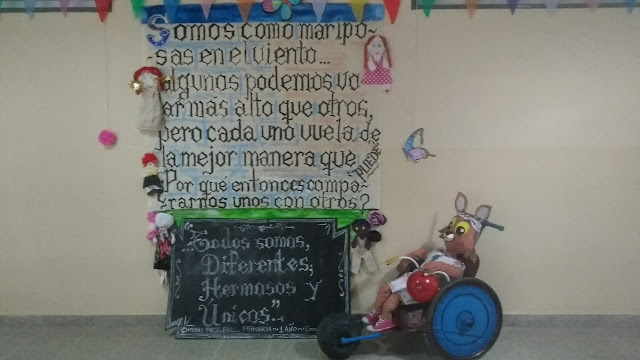 Somos como maripo-
-sas en el viento...
algunos podemos vo
ar mas alto que otros,
pero cada uno vuela de
la mejor manera que
PUEDE
Por qué entonces compa-
-rarnos unos con otros?
"...Todos somos,
Diferentes,
Hermosos y
Unicos"..
PRIMARIA ~ 1 AÑO